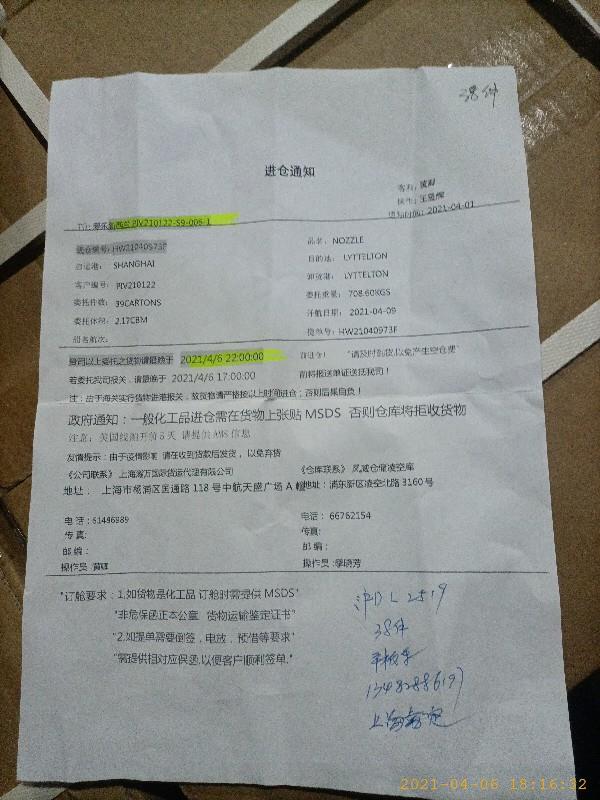 38件
进仓通知
客服：黄卿
操作：王晟辉
通知时间：2021-04-01
PJV210122-S9-006-1
进仓编号：HW21040973F
品名： NOZZLE
启运港： SHANGHAI
目的地： LYTTELTON
卸货港： LYTTELTON
客户编号：PJV210122
委托重量： 708.60KGS
委托件数： 39CARTONS
开航日期： 2021-04-09
委托体积： 2.17CBM
提单号：HW21040973F
船名航次：
贵司以上委托之货物请最晚于 2021/4/6 22:00:00 前进仓！ "请及时到货，以免产生空仓费"
若委托我司报关，请最晚于 2021/4/6 17:00:00 前将报送单证送抵我司！
注：由于海关实行货物进港报关，故货物请严格按以上时间进仓；否则后果自负！
政府通知：一般化工品进仓需在货物上张贴 MSDS 否则仓库将拒收货物
注意：美国线船开前5天 请提供AMS信息
友情提示：由于疫情影响 请在收到货款后发货 ，以免弃货
《公司联系》上海瀚万国际货运代理有限公司
《仓库联系》凤威仓储凌空库
地址 ： 上海市杨浦区国通路 118 号中航天盛广场 A
地址：浦东新区凌空北路 3160 号
电 话：61486989
电话： 66762154
传 真：
传真：
邮 编：
邮 编：
操作员 :黄卿
操作员 :季晓芳
"订舱要求：1.如货物是化工品 订舱时需提供 MSDS"
"非危保函正本公章 货物运输鉴定证书"
"2.如提单需要倒签，电放，预借等要求"
"需提供相对应保函.以便客户顺利签单."
沪DL2519
38件
平板车
13482886197
上海
2021-04-06 18:16:32